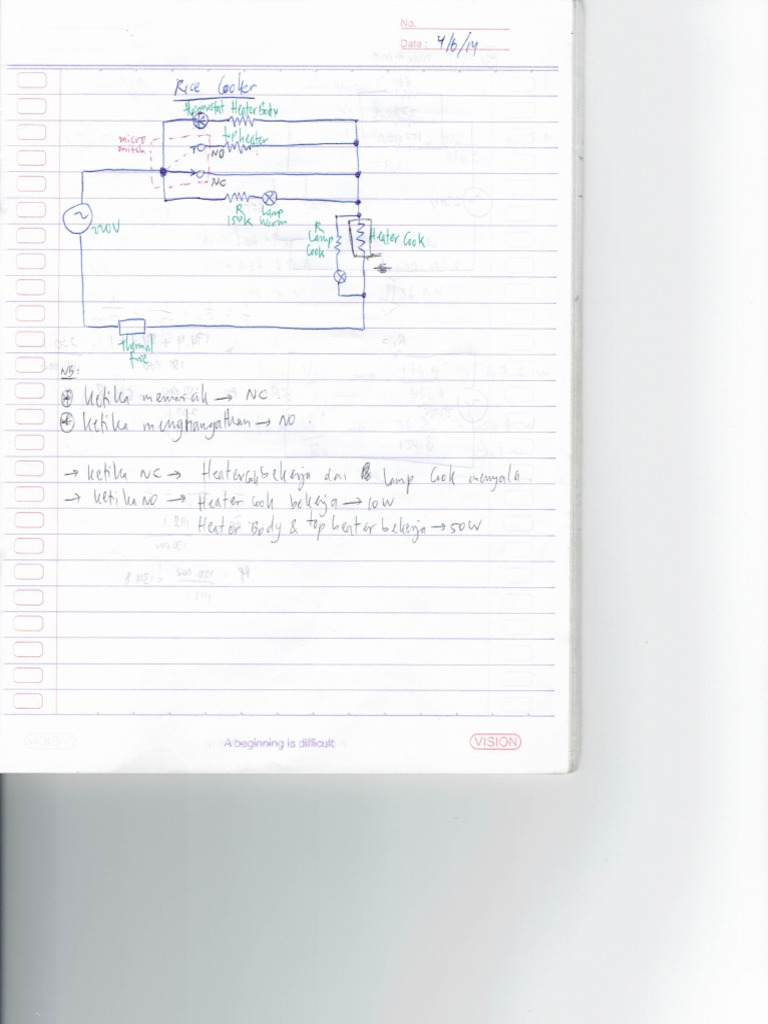 No.
Date : 4/6/14
Rice Cooker
thermostat Heater Body
top heater
micro
switch
NO
NC
R
150K
Lamp
Warm
220V
R
Lamp
Cook
Heater Cook
thermal
fuse
NB:
ketika memasak → NC.
ketika menghangatkan → NO.
→ ketika NC → Heater Cook bekerja dan Lamp Cook menyala.
→ ketika NO → Heater Cook bekerja → 10W
Heater Body & top heater bekerja → 50W
A beginning is difficult
VISION